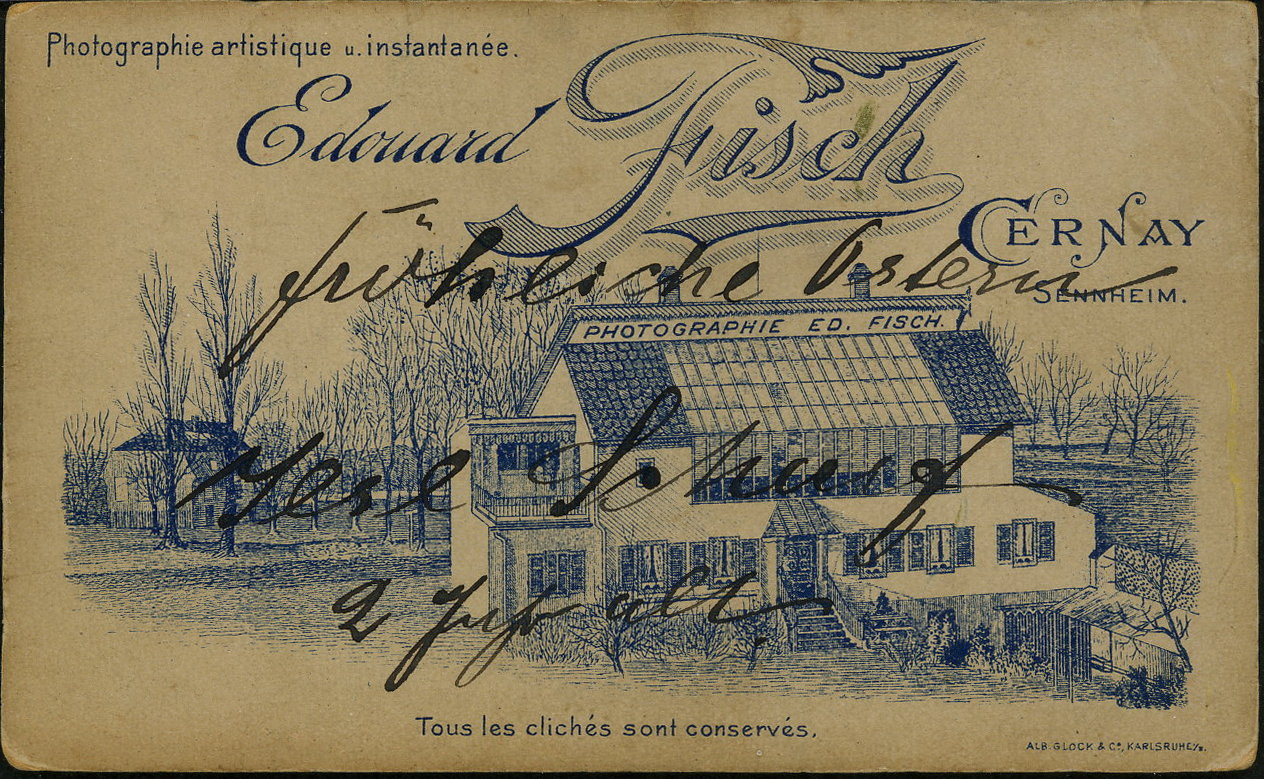 Photographie artistique u. instantanée.
Edouard Fisch
CERNAY
SENNHEIM.
fröhliche Ostern
PHOTOGRAPHIE ED. FISCH.
2 Jahr alt.
Tous les clichés sont conservés.
ALB. GLOCK & Co, KARLSRUHE i/B.